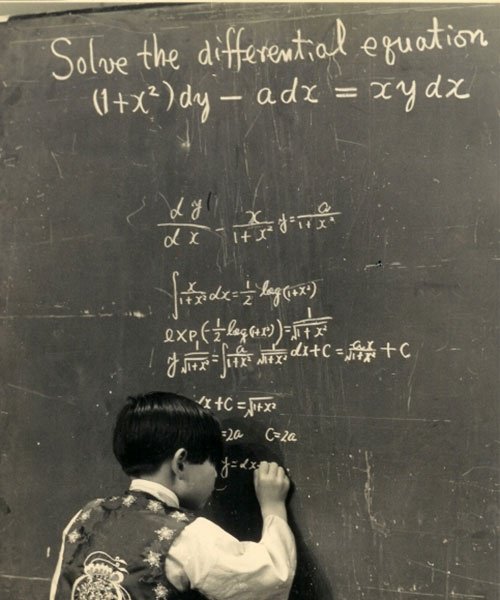 Solve the differential equation
(1+x²)dy − adx = xydx
dy/dx − x/(1+x²) y = a/(1+x²)
∫ x/(1+x²) dx = 1/2 log(1+x²)
exp(−1/2 log(1+x²)) = 1/√(1+x²)
y 1/√(1+x²) = ∫ a/(1+x²) 1/√(1+x²) dx + C = ax/√(1+x²) + C
x + C √(1+x²)
=2a C=2a
y=ax+